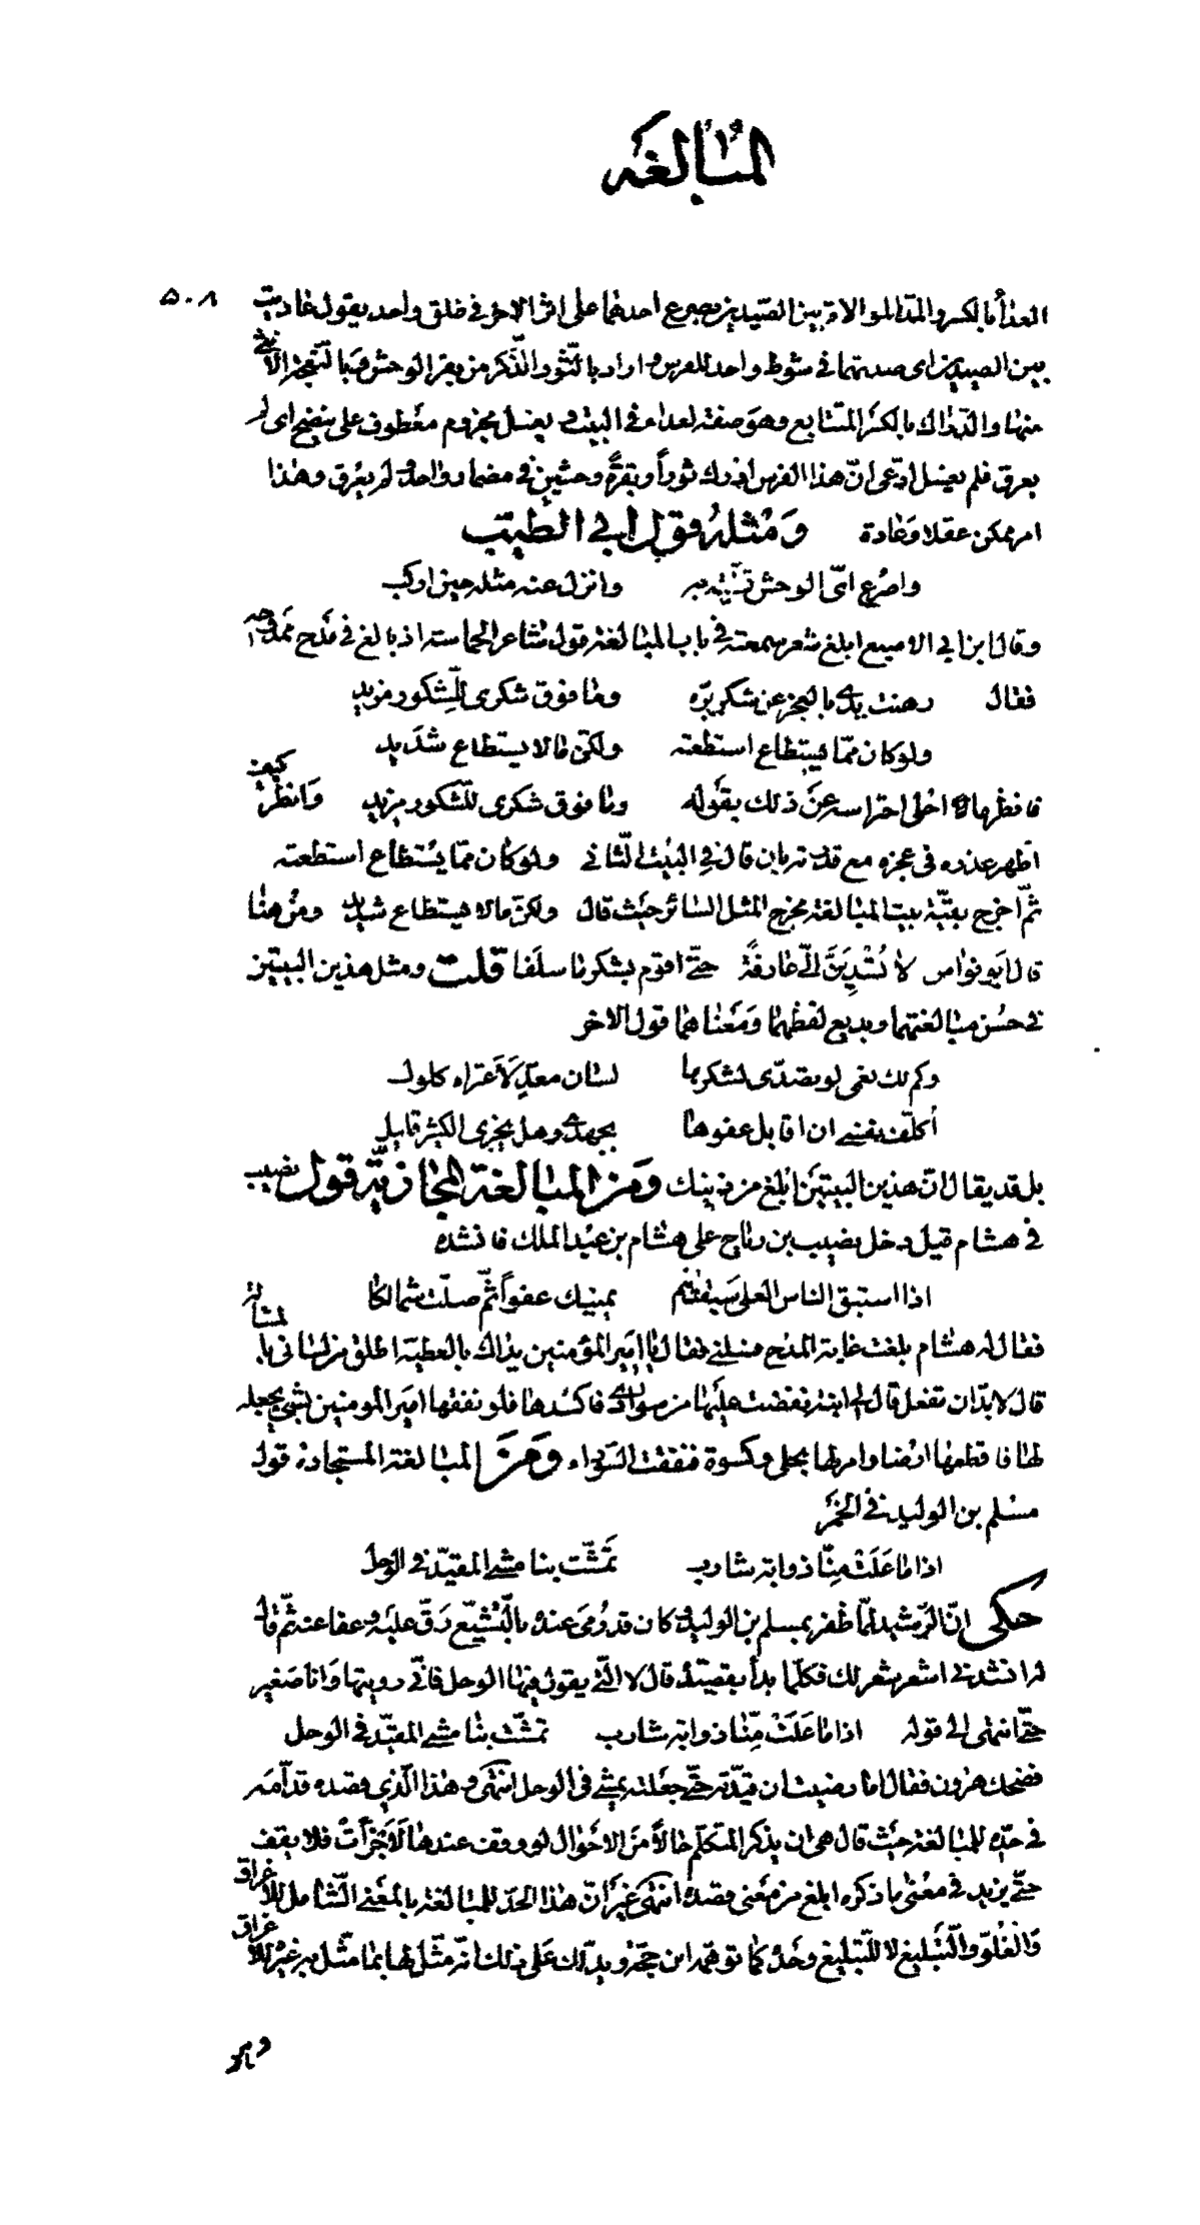 المبالغه
٥٠٨
العداء بالكسر والمد الموالاة بين الصيدين يصرع احدهما على اثر الاخر فى طلق واحد يقول عاديت
بين الصيدين اى صدتهما فى شوط واحد للعرس و اراد بالثور الذكر من بقر الوحش و بالنعجة الانثى
منها والدراك بالكسر المتتابع وهو صفة لعداء فى البيت و يغسل مجزوم معطوف على ينضح اى لم
يعرق فلم يغسل ادعى ان هذا الفرس ادرك ثوراً وبقرةً وحشيين فى مضمار واحد و لم يعرق وهذا
امر ممكن عقلا وعادة ومثله قول ابى الطيب
واصرع اىّ الوحش قفّيته به وانزل عنه مثله حين اركب
وقال ابن ابى الاصبع ابلغ شعر سمعته فى باب المبالغة قول شاعر الحماسة اذ بالغ فى مدح ممدوحه
فقال رهنت يدى بالعجز عن شكر برّه وما فوق شكرى للشكور مزيد
ولو كان ممّا يستطاع استطعته ولكن ما لا يستطاع شديد
فانظر ما احلى احتراسه عن ذلك بقوله وما فوق شكرى للشكور مزيد وانظر كيف
اظهر عذره فى عجزه مع قدرته بان قال فى البيت الثانى ولو كان ممّا يستطاع استطعته
ثمّ اخرج بقيّة بيت المبالغة مخرج المثل السائر حيث قال ولكن ما لا يستطاع شديد ومن هنا
قال ابو نواس لا تُسْدِيَنَّ الىّ عارفةً حتى اقوم بشكر ما سلفا قلت ومثل هذين البيتين
فى حسن مبالغتهما وبديع لفظهما ومعناهما قول الاخر
وكم لك نعمى لو تصدّى لشكرها لسان معدّ لاعتراه كلول
أكلّف نفسى ان اقابل عفوها بجهدى وهل يجزى الكثير قليل
بل قد يقال ان هذين البيتين ابلغ من ذينك ومن المبالغة المجازيّة قول نصيب
فى هشام قيل دخل نصيب بن رباح على هشام بن عبد الملك فانشده
اذا استبق الناس العلى سبقتهم يمينك عفواً ثمّ صلّت شمالكا
فقال له هشام بلغت غاية المدح فسلنى فقال يا امير المؤمنين يداك بالعطية اطلق من لسانى بالمسألة
قال لابدّ ان تفعل قال لى ابنة نفضت عليها من سوادى فاكسدها فلو نفقها امير المومنين بشىء يجعله
لها فاقطعها ارضا وامر لها بحلى وكسوة فنفقت السوداء ومن المبالغة المستجادة قول
مسلم بن الوليد فى الخمر
اذا ما عَلَتْ مِنّا ذوابة شارب تمشّت بنا مشى المقيّد فى الوحل
حكى انّ الرّشيد لمّا ظفر بمسلم بن الوليد و كان قد رُمى عنده بالتشيّع رَقّ عليه و عفا عنه ثمّ قال
له انشدنى اشعر شعر لك فكلّما بدأ بقصيدة قال لا الّتى يقول فيها الوحل فانّى رويتها وانا صغير
حتى انتهى الى قوله اذا ما عَلَتْ مِنّا ذوابة شارب تمشّت بنا مشى المقيّد فى الوحل
فضحك هرون فقال اما رضيت ان قيّدته حتى جعلته يمشى فى الوحل انتهى و هذا الّذى قصده قدامه
فى حدّه للمبالغة حيث قال هى ان يذكر المتكلّم حالاً من الاحوال لو وقف عندها لأجزأت فلا يقف
حتى يزيد فى معنى ما ذكره ابلغ من معنى قصده انتهى غير انّ هذا الحدّ للمبالغة بالمعنى الشامل للاغراق
والغلوّ والتبليغ لا للتبليغ وحده كما توهمه ابن حجّة ويدلّك على ذلك انّه مثّل لها بما مثّل به غيره للاغراق